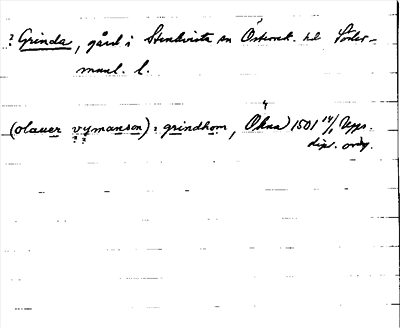 ? Grinda, gård i Stenkvista sn Österrek. hd Söder-
manl. l.
(olauer vymanson) i grindhom, Økna 1501 14/1 Upps.
? ?
dipl. ordg.